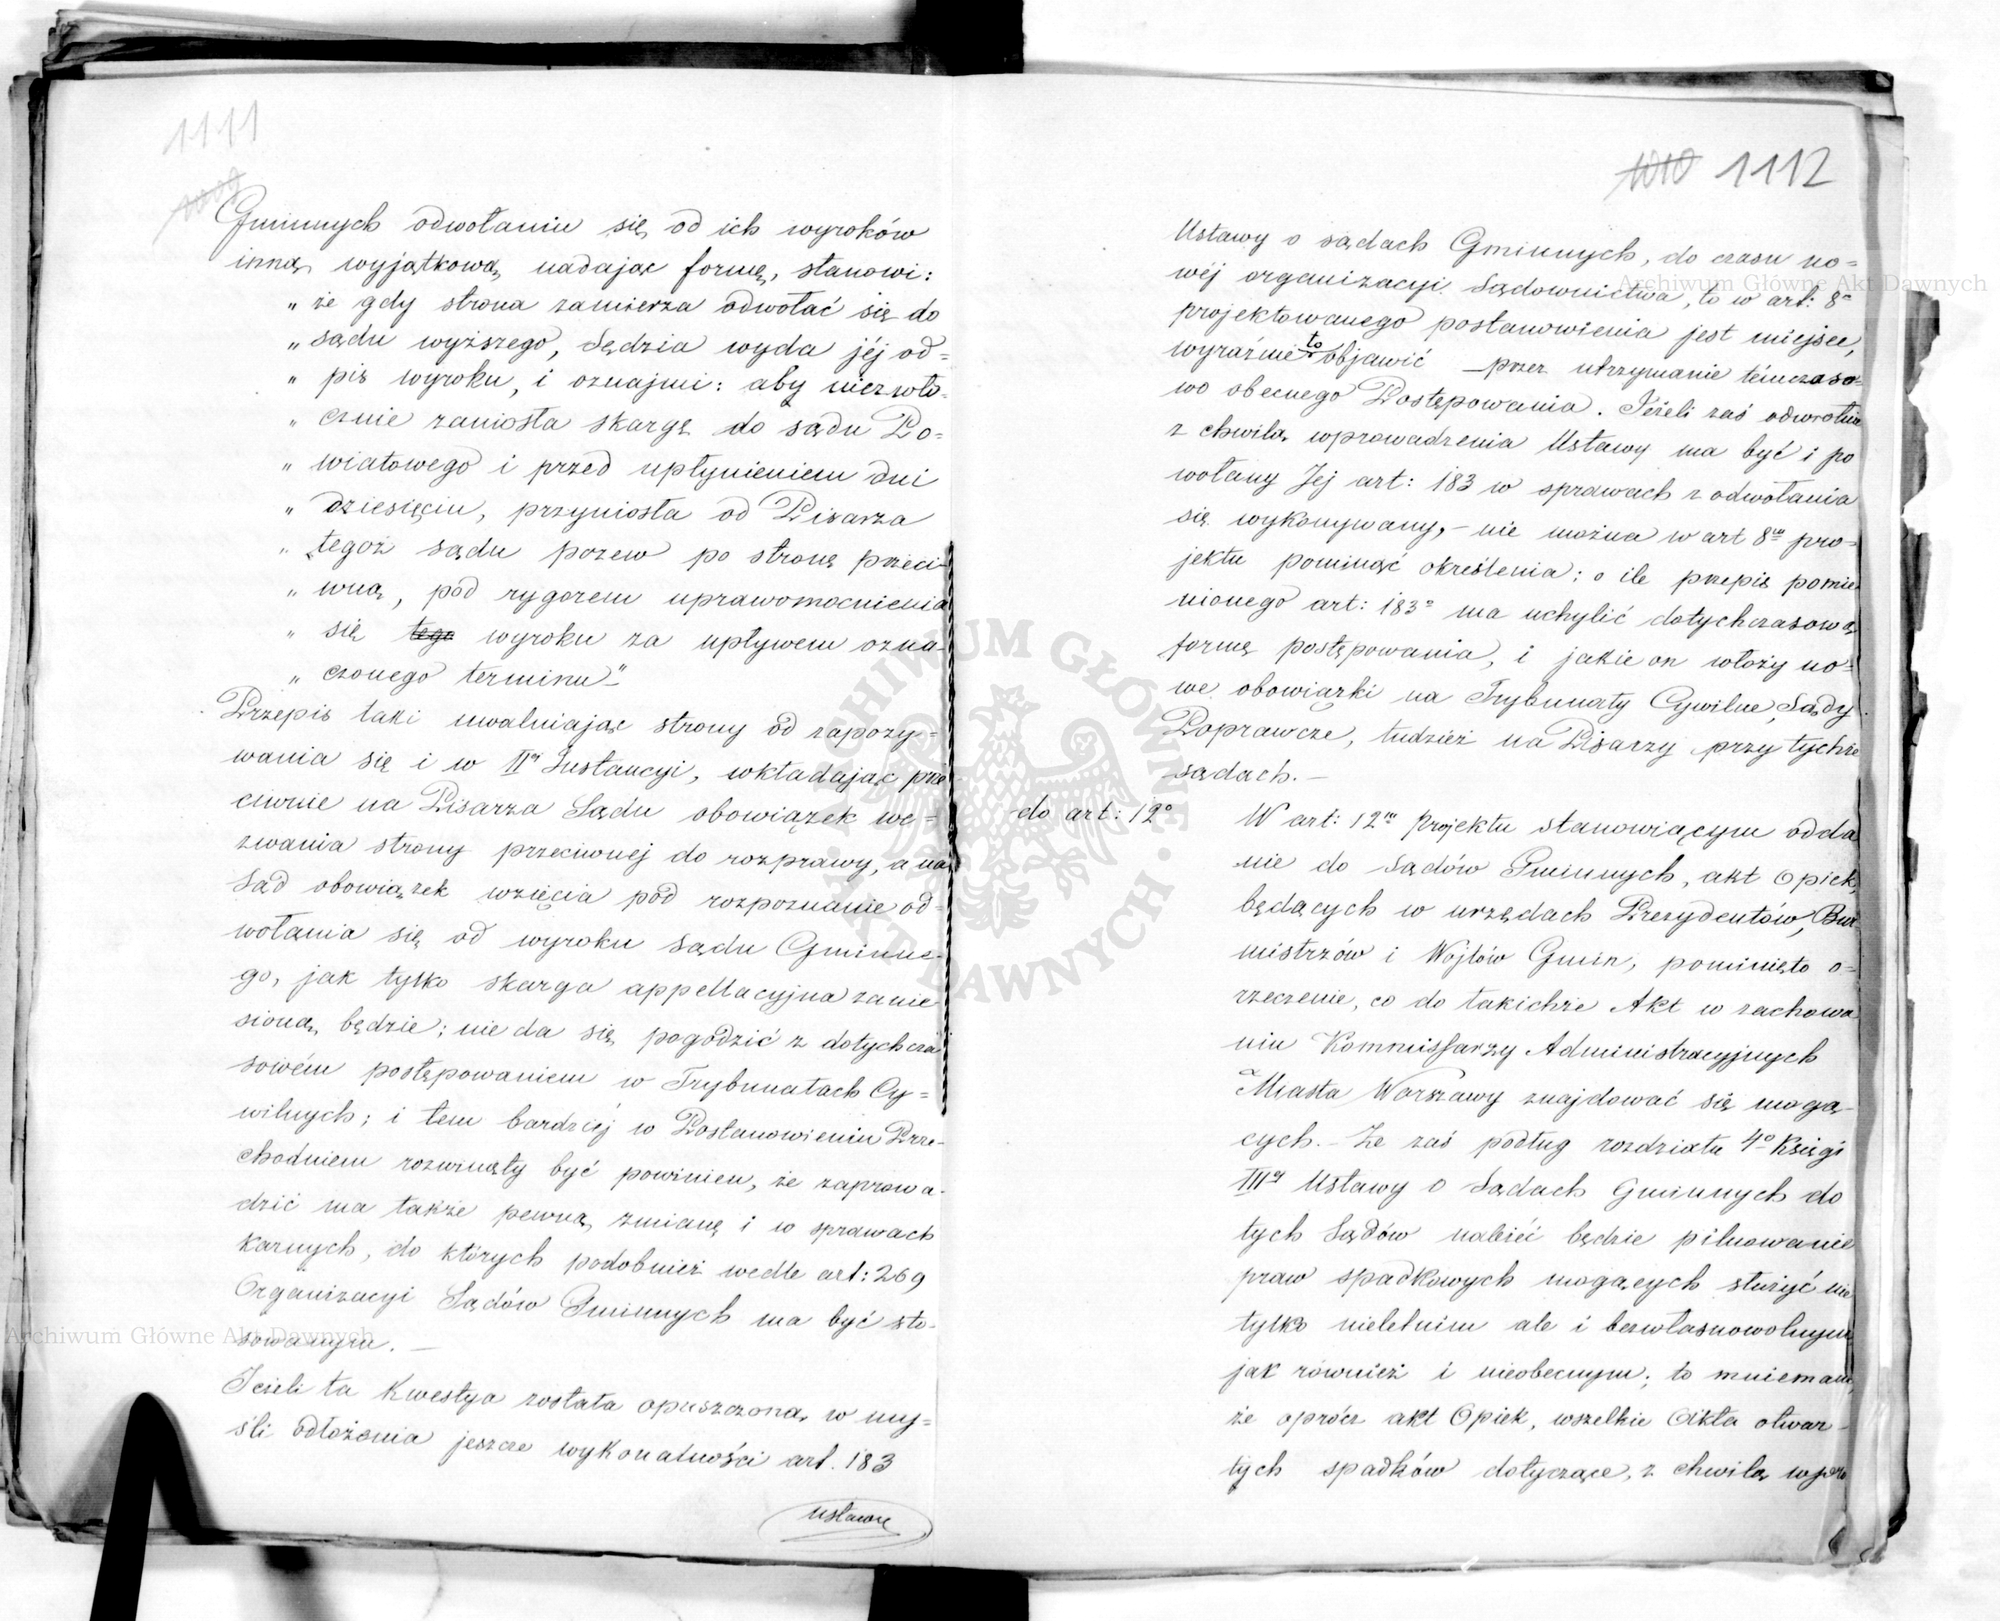 1111
1009
Gminnych odwołaniu się od ich wyroków
inną wyjątkową nadając formę, stanowi:
„ że gdy strona zamierza odwołać się do
„ sądu wyższego, Sędzia wyda jéj od=
„ pis wyroku, i oznajmi: aby niezwło-
„ cznie zaniosła skargę do sądu Po=
„ wiatowego i przed upłynieniem dni
„ dziesięciu, przyniosła od Pisarza
„ tegoż sądu pozew po stronę przeci-
„ wną, pod rygorem uprawomocnienia
„ się tego wyroku za upływem ozna-
„ czonego terminu"
Przepis taki uwalniając strony od zapozy-
wania się i w IIéj Instancyi, wkładając prze
ciwnie na Pisarza Sądu obowiązek we=
zwania strony przeciwnej do rozprawy, a na
Sąd obowiązek wzięcia pod rozpoznanie od-
wołania się od wyroku Sądu Gminne-
go, jak tylko skarga appellacyjna zanie-
sioną będzie; nie da się pogodzić z dotychcza
sowém postępowaniem w Trybunałach Cy=
wilnych; i tem bardziéj w Postanowieniu Prze-
chodniem rozwinięty być powinien, że zaprowa-
dzić ma także pewną zmianę i w sprawach
karnych, do których podobnież wedle art: 269
Organizacyi Sądów Gminnych ma być sto-
sowanym. —
Jeżeli ta Kwestya została opuszczoną w my=
śli odłożenia jeszcze wykonalności art. 183
Ustawy
1010 1112
Ustawy o sądach Gminnych, do czasu no=
wéj organizacyi Sądownictwa, to w art: 8o
projektowanego postanowienia jest miejsce,
wyraźnie to objawić przez utrzymanie témczaso-
wo obecnego Postępowania. Jeżeli zaś odwrotnie
z chwilą wprowadzenia Ustawy ma być i po
wołany Jej art: 183 w sprawach z odwołania
się wykonywany, – nie można w art 8m pro-
jektu pominąć określenia; o ile przepis pomie
nionego art: 183o ma uchylić dotychczasową
formę postępowania, i jakie on włoży no-
we obowiązki na Trybunały Cywilne, Sądy
Poprawcze, tudzież na Pisarzy przy tychże
sądach. —
do art: 12o
W art: 12m projektu stanowiącym odda
nie do Sądów Gminnych, akt Opiek,
będących w urzędach Prezydentów, Bur
mistrzów i Wójtów Gmin, pominięto o=
rzeczenie, co do takichże Akt w zachowa
niu Kommissarzy Administracyjnych
Miasta Warszawy znajdować się mogą-
cych. – Że zaś podług rozdziału 4o Księgi
IIIéj Ustawy o Sądach Gminnych do
tych Sądów należéć będzie pilnowanie
praw spadkowych mogących służyć nie
tylko nieletnim ale i bezwłasnowolnym
jak również i nieobecnym; to mniemam,
że oprócz akt Opiek, wszelkie Akta otwar-
tych spadków dotyczące, z chwilą wpro
Archiwum Główne Akt Dawnych
Archiwum Główne Akt Dawnych
ARCHIWUM GŁÓWNE AKT DAWNYCH